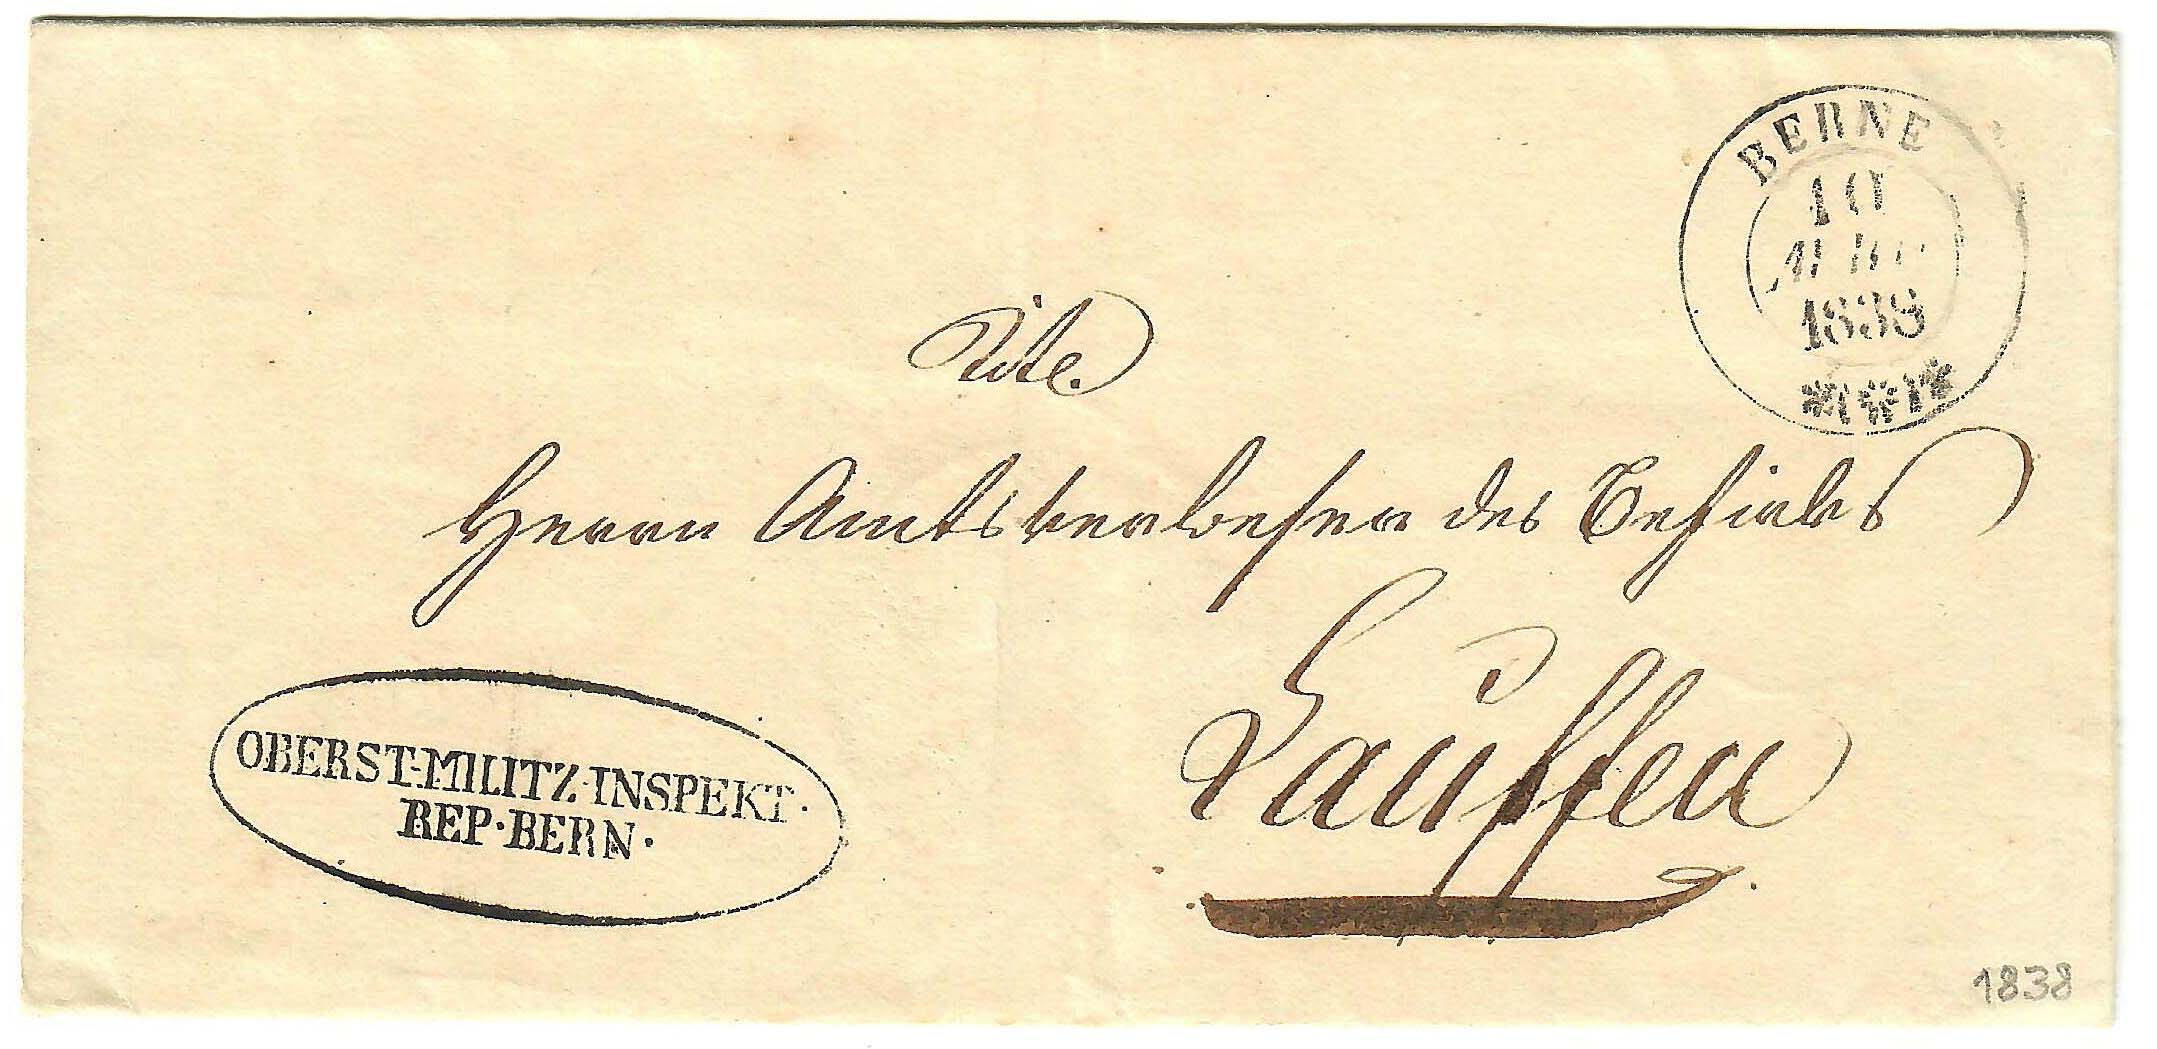 BERNE
10
1838
Tite.
Herrn Amtsverweser des Bezirks
Lauffen
OBERST-MILITZ-INSPEKT.
REP. BERN.
1838